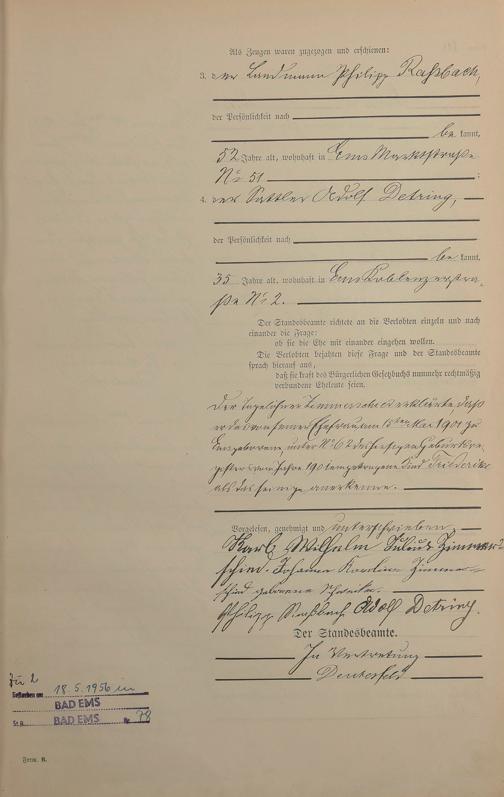 Als Zeugen waren zugezogen und erschienen:
3. der Landmann Philipp Raßbach,
der Persönlichkeit nach
be kannt,
52 Jahre alt, wohnhaft in Ems Marktstraße
No 51 ;
4. der Sattler Adolf Detring,
der Persönlichkeit nach
be kannt,
35 Jahre alt, wohnhaft in Ems Koblenzerstra-
ße No 2.
Der Standesbeamte richtete an die Verlobten einzeln und nach
einander die Frage:
ob sie die Ehe mit einander eingehen wollen.
Die Verlobten bejahten diese Frage und der Standesbeamte
sprach hierauf aus,
daß sie kraft des Bürgerlichen Gesetzbuchs nunmehr rechtmäßig
verbundene Eheleute seien.
Der Tagelöhner Zimmerschied erklärte, daß
er das von seiner Ehefrau am 15ten Mai 1901 zu
Ems geborene, unter No 62 des hiesigen Geburtsre-
gisters vom Jahre 1901 eingetragene Kind Friederike
als das seinige anerkenne.
Vorgelesen, genehmigt und unterschrieben
Karl Wilhelm Julius Zimmer-
schied. Johanna Karoline Zimmer-
schied geborene
Philipp Raßbach Adolf Detring.
Der Standesbeamte.
In Vertretung
Zu 2
Gestorben am 18.5.1956 in
BAD EMS
St.A. BAD EMS Nr. 78
Form. B.